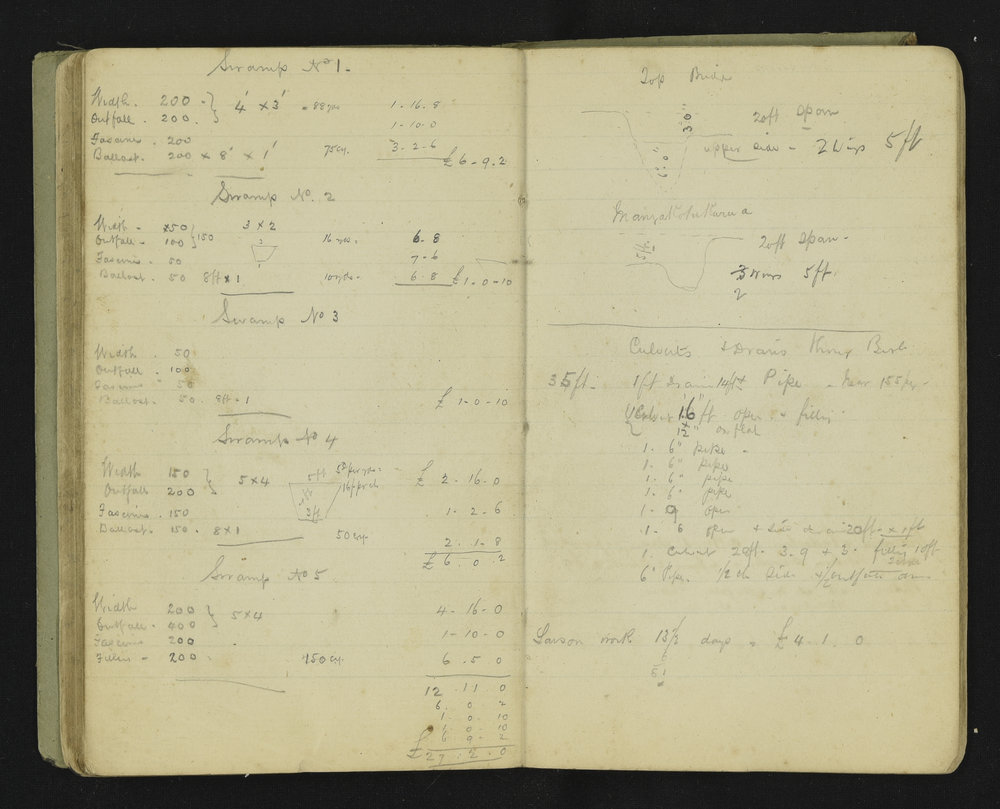 Swamp No 1.
Width. 200 - } 4' x 3' = 88 yds 1 - 16 - 8
Outfall. 200. 1 - 10 - 0
Fascine. 200 3 - 2 - 6
Ballast. 200 x 8' x 1' 75 cy. £ 6 - 9 - 2
Swamp No. 2
Width - 50 } 150 3 x 2 16 yds - 6 - 8
Outfall - 100
Fascine - 50 7 - 6
Ballast. 50 8ft x 1 10 yds - 6 - 8 £ 1 - 0 - 10
Swamp No 3
Width. 50
Outfall. 100
Fascine 50
Ballast. 50. 8ft - 1 £ 1 - 0 - 10
Swamp No 4
Width 150 } 5 x 4 5ft £ 2 - 16 - 0
Outfall 200
Fascine. 150 3ft 1 - 2 - 6
Ballast. 150. 8 x 1 50 cy. 2. 1 - 8
£ 6. 0. 2
Swamp No 5
Width 200 } 5 x 4 4 - 16 - 0
Outfall - 400
Fascine 200 1 - 10 - 0
Filling - 200 150 cy. 6 . 5 0
12 . 11 0
6. 0. 2
1. 0. 10
1 0. 10
6 9 - 2
£ 27. 2. 0
Top
3'0" 20ft span
6'0" upper side - 2 Wings 5ft
5ft. 20ft span -
3 Wings 5ft.
2
Culverts & Drains
35ft - 1ft Drain 14ft Pipe -
16 ft. open & filling
12" on flat
1. 6" pipe -
1. 6" pipe
1. 6" pipe
1. 6" pipe
1 - 9 open
1 - 6 open & side drain 20ft x 1ft
1. Culvert 20ft. 3 - 9 x 3. filling 10ft
6" Pipe. 1/2 ch side & 1/2 outfall
Larson work 13 1/3 days = £ 4. 1. 0
6
81